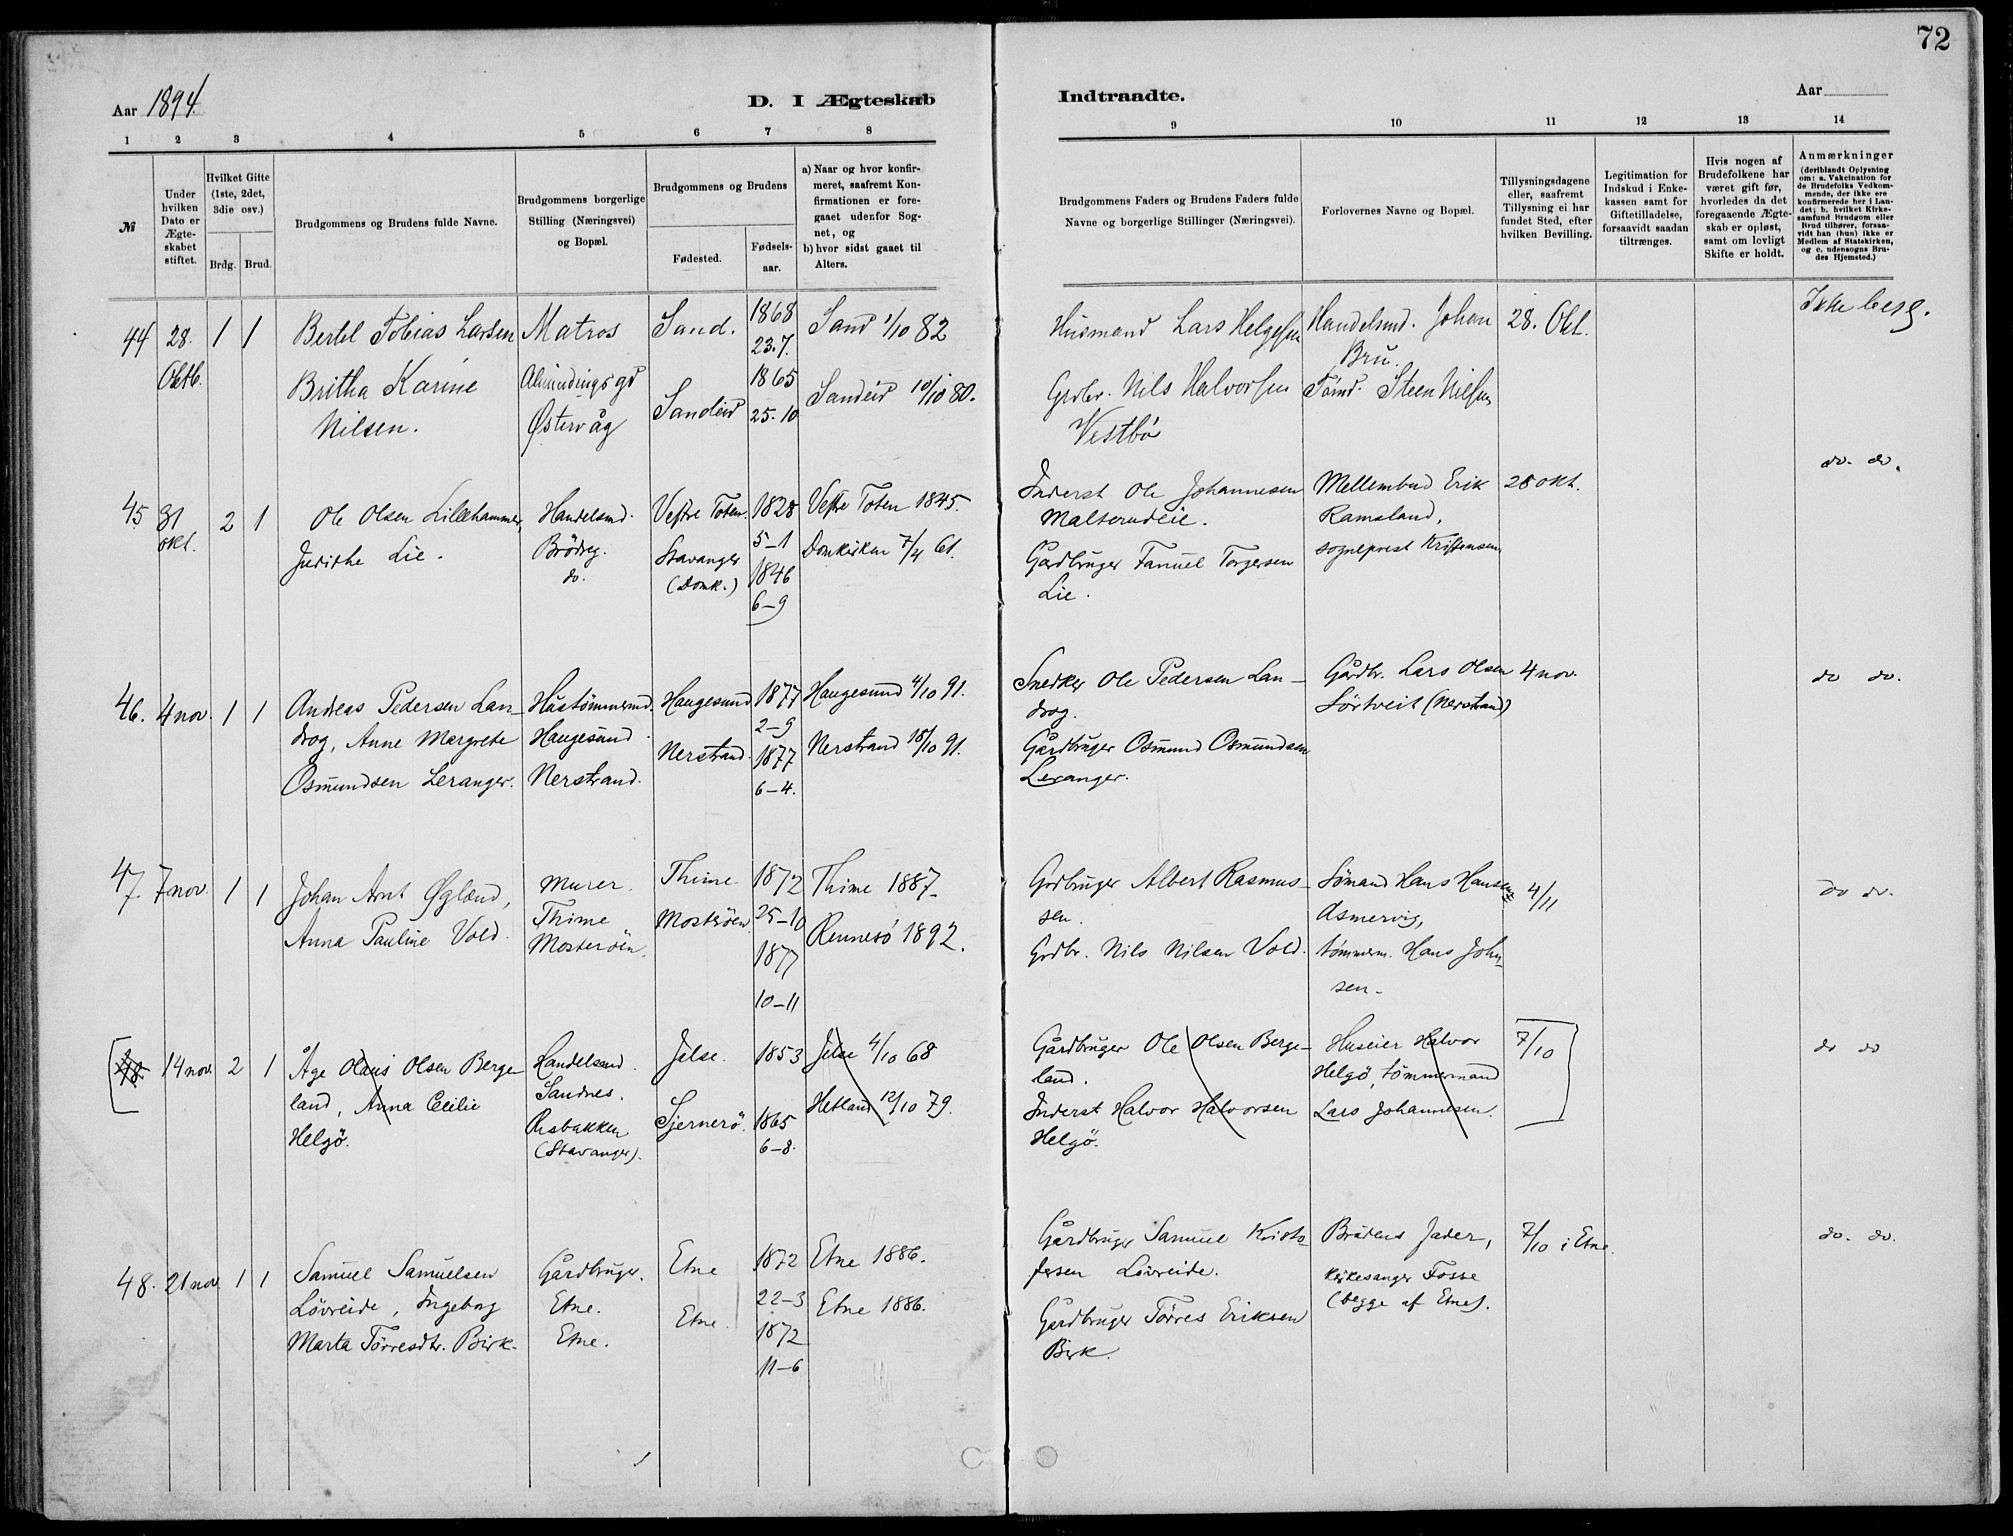 72
Aar 1894.
D. I Ægteskab
Indtraadte.
Aar
1 2 3 4 5 6 7 8
9 10 11 12 13 14
№
Under hvilken Dato er Ægteskabet stiftet.
Hvilket Gifte (1ste, 2det, 3die osv.)
Brdg. Brud.
Brudgommens og Brudens fulde Navne.
Brudgommens borgerlige Stilling (Næringsvei) og Bopæl.
Brudgommens og Brudens
Fødested.
Fødselsaar.
a) Naar og hvor konfirmeret, saafremt Konfirmationen er foregaaet udenfor Sognet, og
b) hvor sidst gaaet til Alters.
Brudgommens Faders og Brudens Faders fulde Navne og borgerlige Stillinger (Næringsvei).
Forlovernes Navne og Bopæl.
Tillysningsdagene eller, saafremt Tillysning ei har fundet Sted, efter hvilken Bevilling.
Legitimation for Indskud i Enkekassen samt for Giftetilladelse, forsaavidt saadan tiltrænges.
Hvis nogen af Brudefolkene har været gift før, hvorledes da det foregaaende Ægteskab er opløst, samt om lovligt Skifte er holdt.
Anmærkninger (deriblandt Oplysning om: a. Vakcination for de Brudefolks Vedkommende, der ikke ere konfirmerede her i Landet; b. hvilket Kirkesamfund Brudgom eller Brud tilhører, forsaavidt han (hun) ikke er Medlem af Statskirken, og c. udensogns Brudes Hjemsted.)
44 28. Oktb. 1 1
Bertel Tobias Larsen
Britha Karine
Nilsen.
Matros
Almindingsgd
Østervåg
Sand.
Sandeid
1868
23.7.
1865
25.10
Sand 1/10 82
Sandeid 10/10 80.
Husmand Lars Helgesen
Grdbr. Nils Halvorsen
Vestbø
Handelsmd. Johan
Bru.
Tømd. Steen Nilsen
28. Okt.
Ikke besg.
45 31 okt. 2 1
Ole Olsen Lillehammer,
Jurithe Lie.
Handelsmd.
Brødreg.
do.
Vestre Toten.
Stavanger
(Domk.)
1828
5-1
1846
6-9
Vestre Toten 1845.
Domkirken 7/4 61.
Inderst Ole Johannesen
Malterudeie.
Gårdbruger Tanuel Torgersen
Lie.
Mellembud Erik
Ramsland,
sogneprest Kristensen
28 okt.
do. do.
46. 4 nov. 1 1
Andreas Pedersen Lan-
drog, Anne Margrete
Osmundsen Leranger.
Hustømmermd.
Haugesund.
Nerstrand.
Haugesund
Nerstrand.
1877
2-9
1877
6-4.
Haugesund 4/10 91.
Nerstrand 18/10 91.
Snedker Ole Pedersen Lan-
drog.
Gårdbruger Osmund Osmundsen
Leranger.
Gårdbr. Lars Olsen
Sørtveit (Nerstrand)
4 nov.
do do.
47. 7 nov. 1 1
Johan Arnt Øglænd,
Anna Pauline Vold.
Murer.
Thime
Mosterøen.
Thime
Mosterøen
1872
25-10
1877
10-11
Thime 1887.
Rennesø 1892.
Grdbruger Albert Rasmus-
sen.
Grdbr. Nils Nilsen Vold.
Sømand Hans Hansen
Asmervig,
tømmerm. Hans John-
sen.
4/11
do do.
48. 14 nov. 2 1
Åge Olaus Olsen Berge-
land, Anna Cecilie
Helgø.
Handelsmd.
Sandnes.
Risbakken
(Stavanger).
Jelse.
Sjernerø.
1853
1865
6-8.
Jelse 4/10 68
Hetland 12/10 79.
Gårdbruger Ole Olsen Berge-
land.
Inderst Halvor Halvorsen
Helgø.
Huseier Halvor
Helgø, tømmermand
Lars Johannesen.
7/10
do do
48. 21 nov. 1 1
Samuel Samuelsen
Løvreide, Ingeborg
Marta Tørresdtr. Birk.
Gårdbruger.
Etne.
Etne.
Etne
Etne.
1872
22-3
1872
11-6
Etne 1886.
Etne 1886.
Gårdbruger Samuel Kristo-
fersen Løvreide.
Gårdbruger Tørres Eriksen
Birk.
Brudens fader,
kirkesanger Fosse
(begge af Etne).
7/10 i Etne.
do. do.